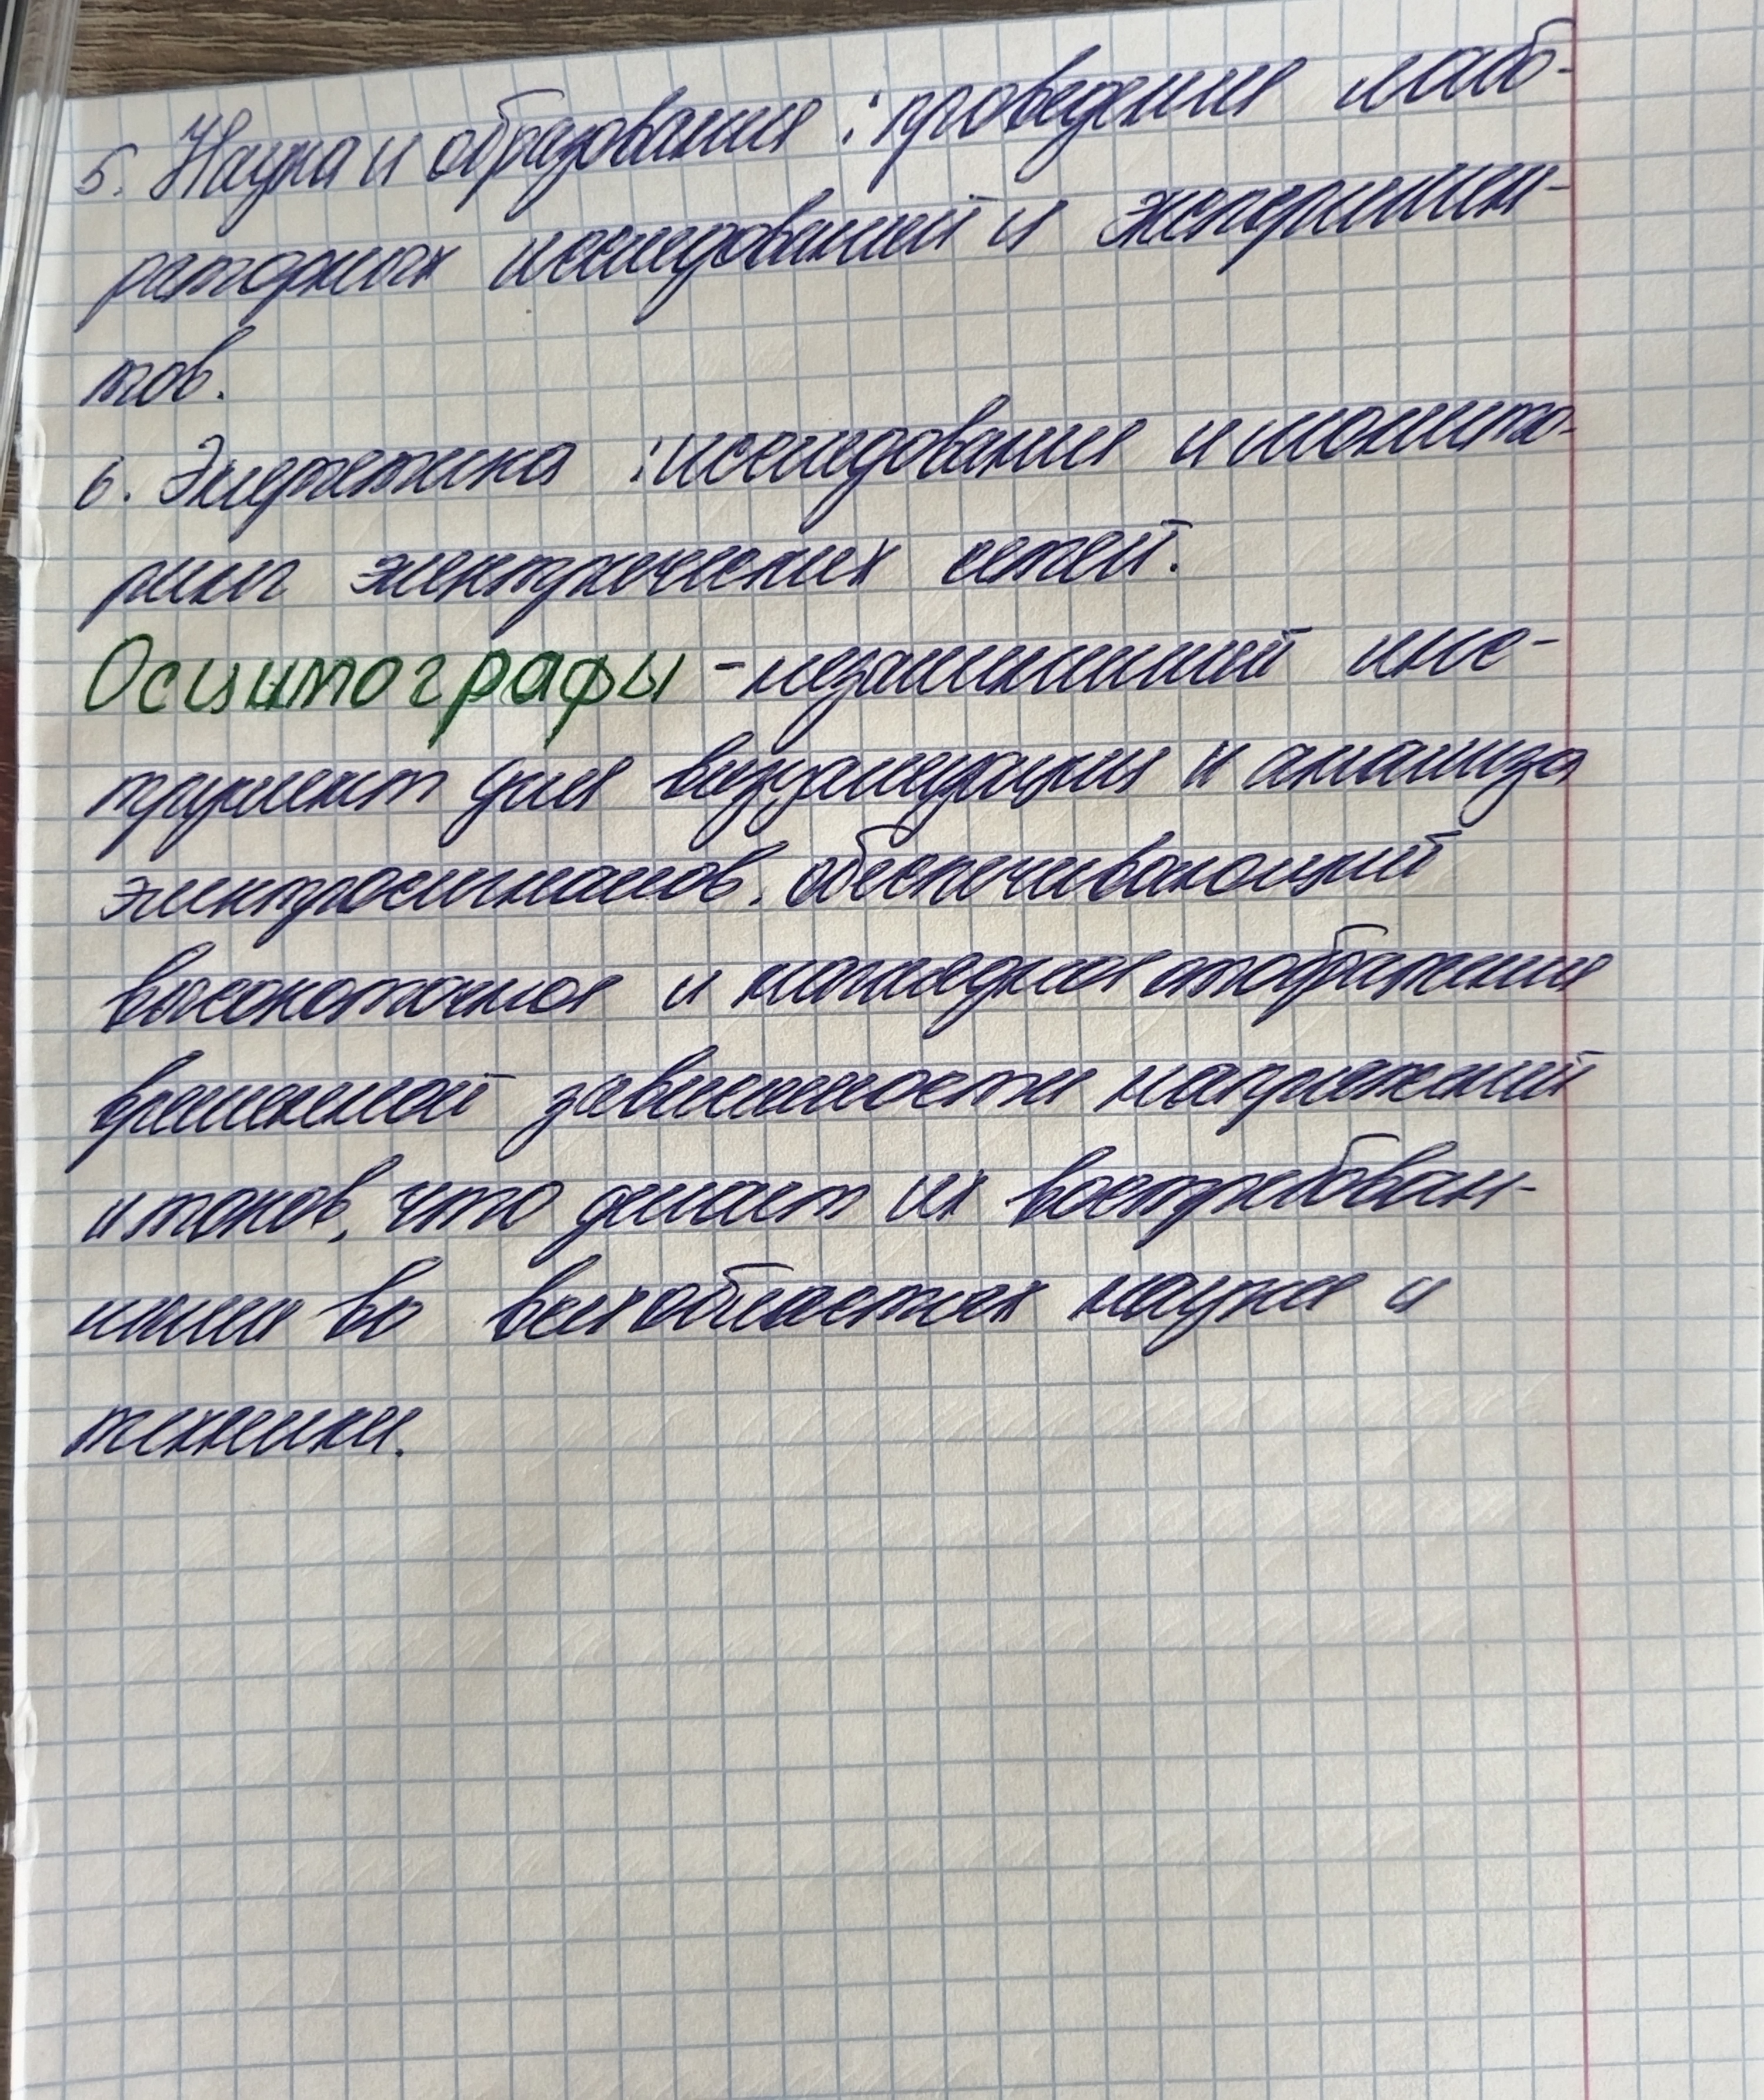 5. Наука и образования: проведения лабо-
раторных исследований и эксперимен-
тов.
6. Энергетика: исследования и монито-
ринг электрических сетей.
Осцилографы - незаменимый инс-
трумент для визуализации и анализа
электросигналов, обеспечивающий
высокоточная и наглядная отображения
временной зависимости напряжений
и токов, что делает их востребован-
ными во всех областях науки и
техники.